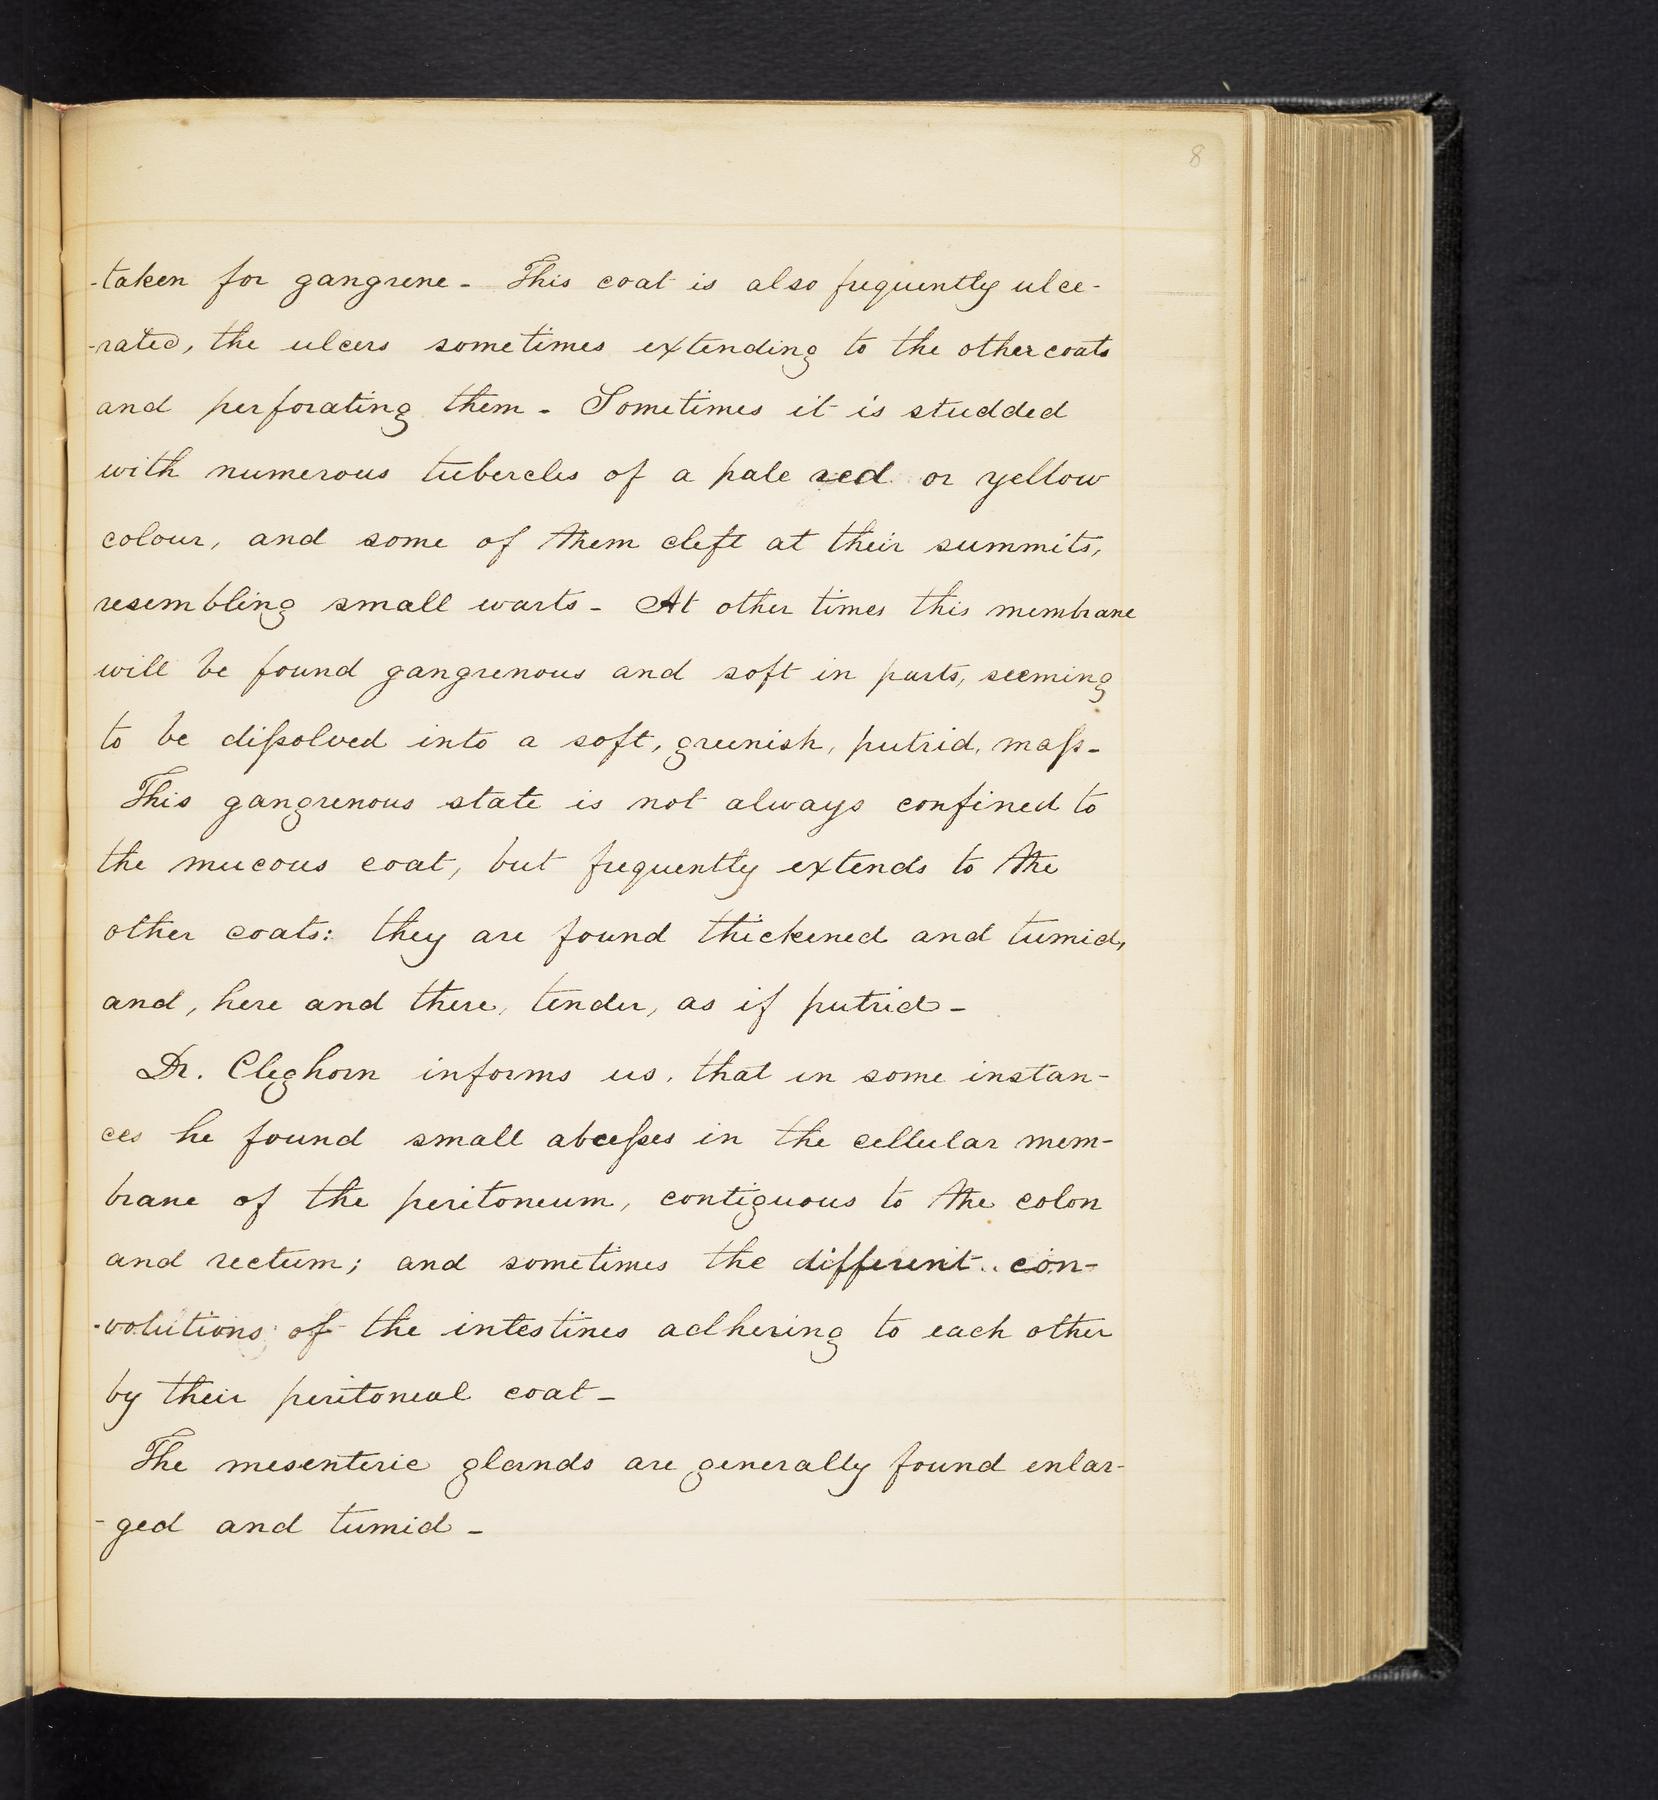 8
-taken for gangrene - This coat is also frequently ulce-
-rated, the ulcers sometimes extending to the other coats
and perforating them - Sometimes it is studded
with numerous tubercles of a pale red or yellow
colour, and some of them cleft at their summits,
resembling small warts - At other times this membrane
will be found gangrenous and soft in parts, seeming
to be diſsolved into a soft, greenish, putrid, maſs -
This gangrenous state is not always confined to
the mucous coat, but frequently extends to the
other coats: they are found thickened and tumid,
and, here and there, tender, as if putrid -
Dr. Cleghorn informs us, that in some instan-
ces he found small abceſses in the cellular mem-
brane of the peritoneum, contiguous to the colon
and rectum; and sometimes the different con-
-volutions of the intestines adhering to each other
by their peritoneal coat -
The mesenteric glands are generally found enlar-
-ged and tumid -